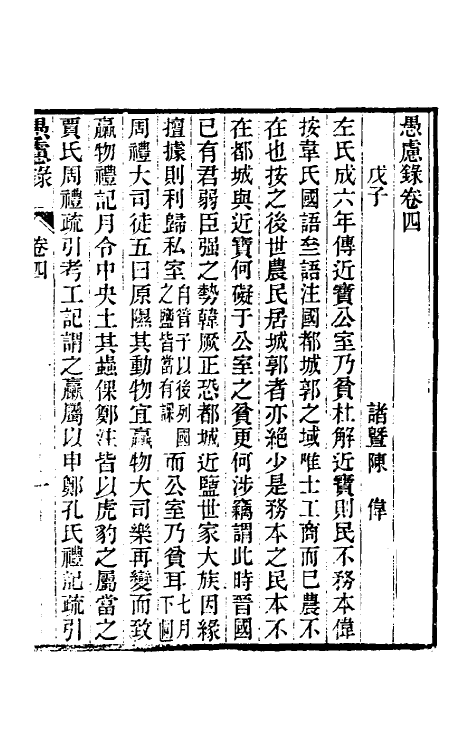 愚慮錄卷四
戊子　諸暨陳　偉
左氏成六年傳近寶公室乃貧杜解近寶則民不務本偉
按韋氏國語㘴語注國都城郭之域唯士工商而已農不
在也按之後世農民居城郭者亦絕少是務本之民本不
在都城與近寶何礙于公室之貧更何涉竊謂此時晉國
已有君弱臣强之勢韓厥正恐都城近鹽世家大族因緣
擅據則利歸私室自管子以後列國之鹽皆當有課而公室乃貧耳七月下同
周禮大司徒五曰原隰其動物宜臝物大司樂再變而致
臝物禮記月令中央土其蟲倮鄭注皆以虎豹之屬當之
賈氏周禮疏引考工記謂之臝屬以申鄭孔氏禮記疏引
愚慮錄　卷四　一